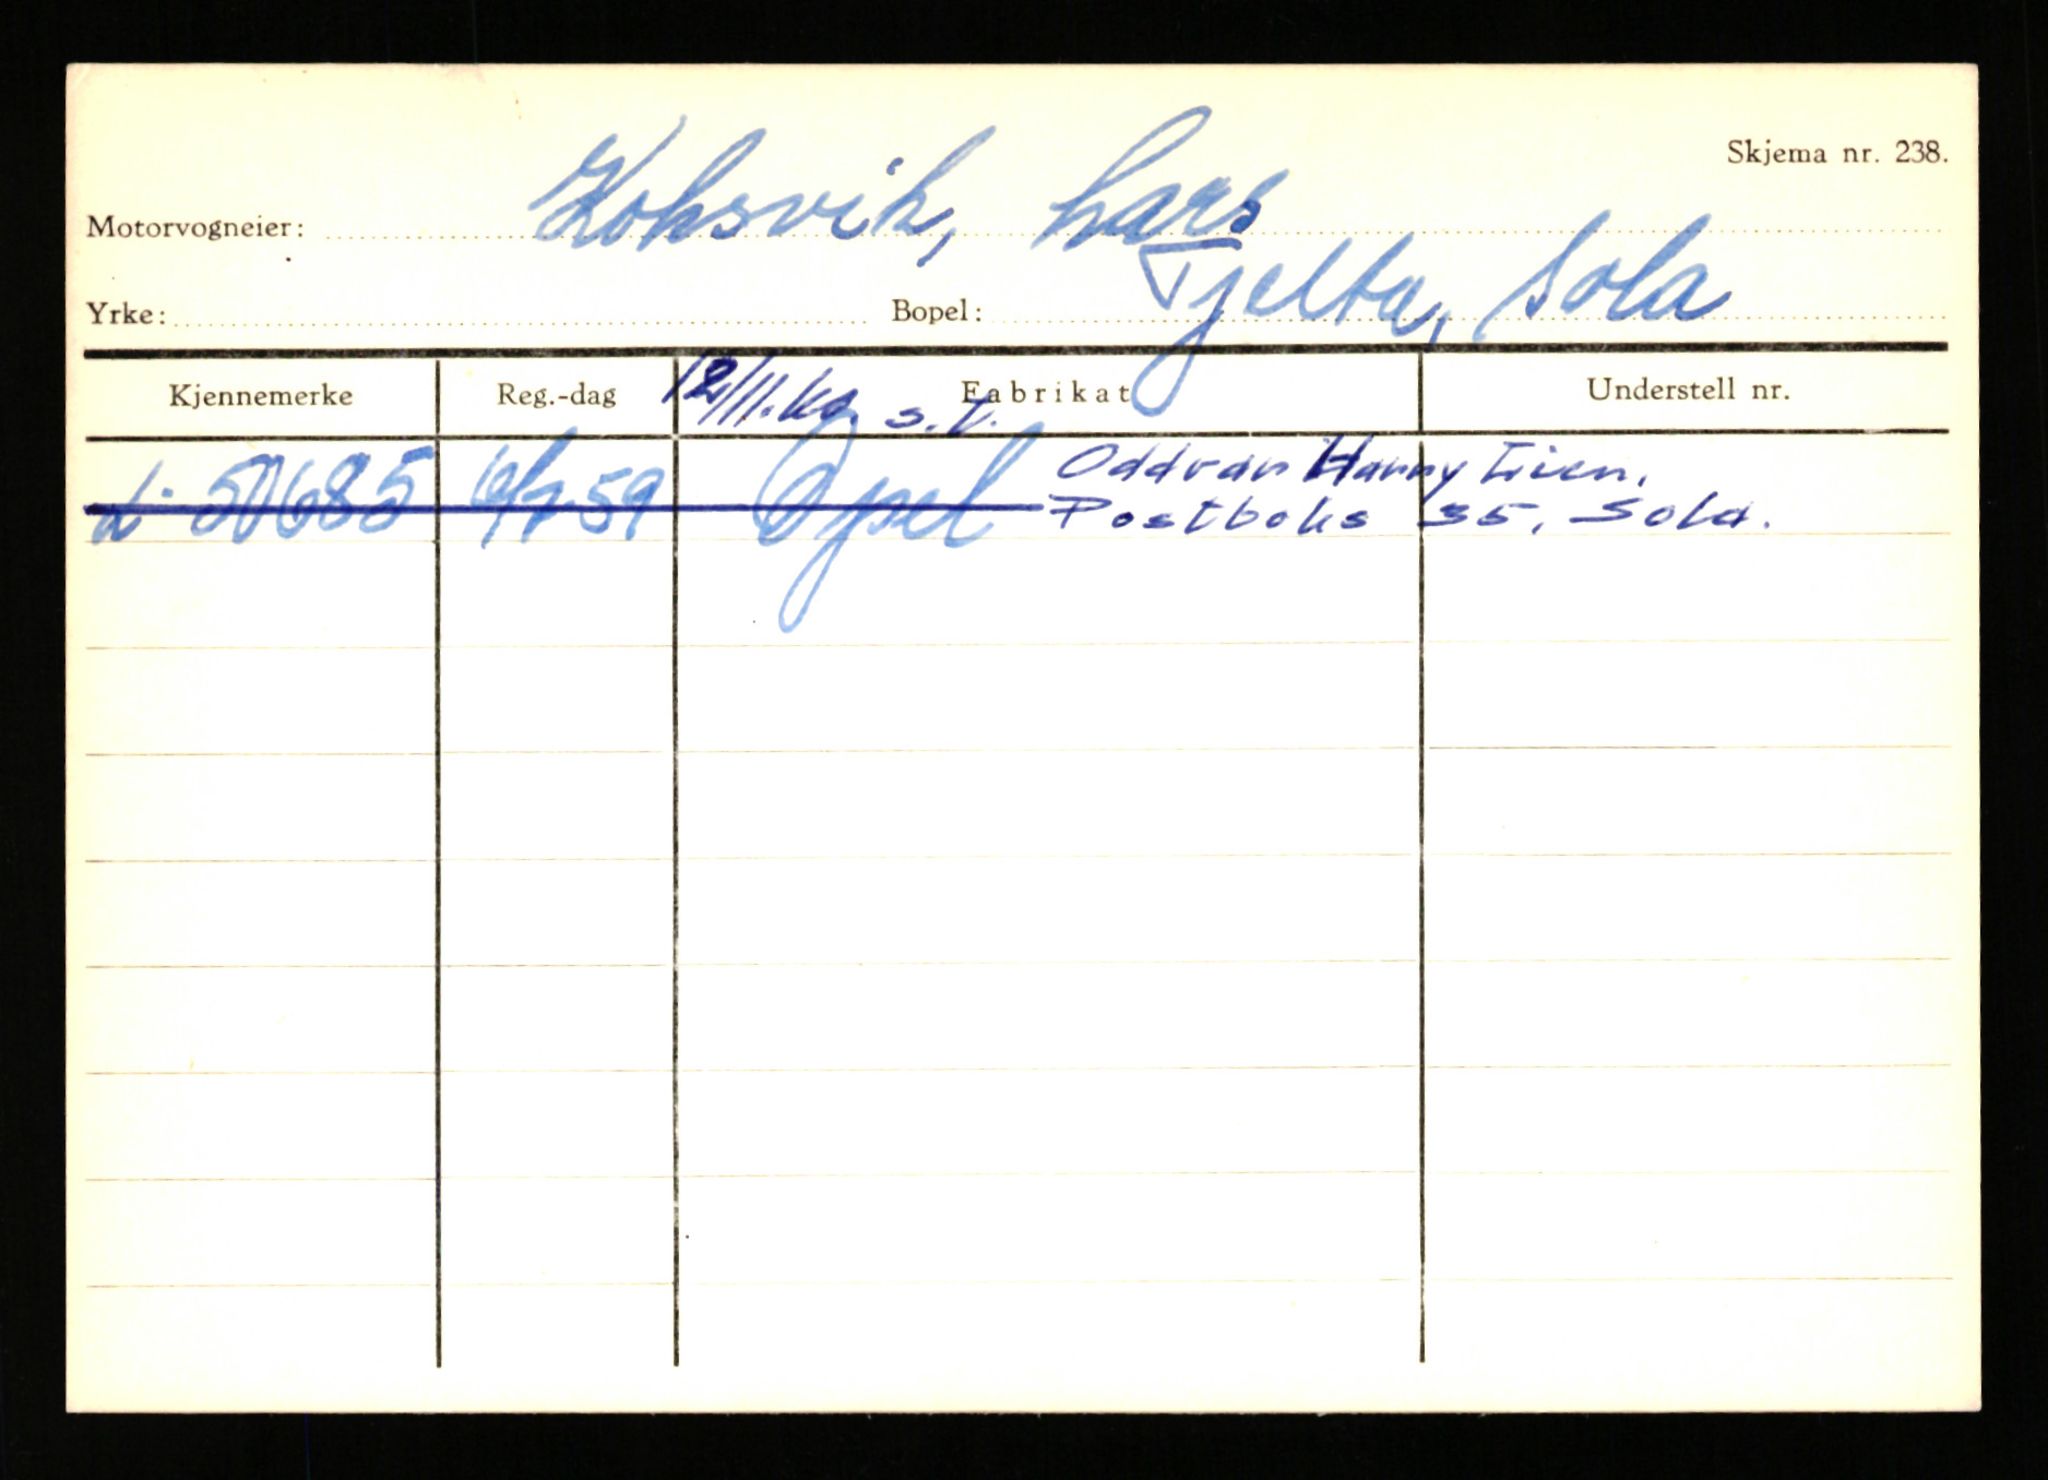 Skjema nr. 238.
Motorvogneier: Koksvik, Lars
Yrke: Bopel: Tjelta, Sola
Kjennemerke Reg.-dag Fabrikat Understell nr.
12/11. s.t.
L- 50685 59 Opel Oddvar Harry Lien,
Postboks 35, Sola.